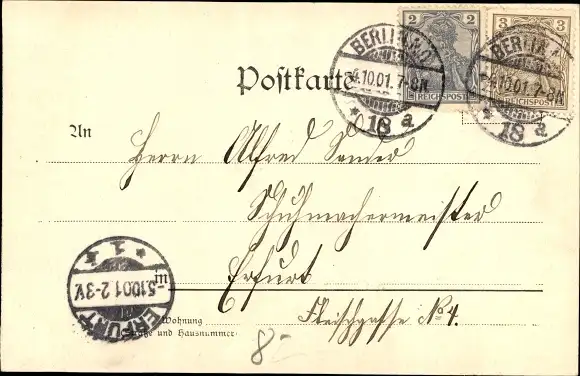 2 3
REICHSPOST REICHSPOST
BERLIN
4.10.01.7-8N
* 18 a
BERLIN
4.10.01.7-8N
* 18 a
Postkarte
An
Herrn Alfred Sander
Schuhmachermeister
in
Erfurt
Wohnung
(Straße und Hausnummer)
Fleischgasse No 4.
ERFURT
-5.10.01 2-3V.
* 1
8-